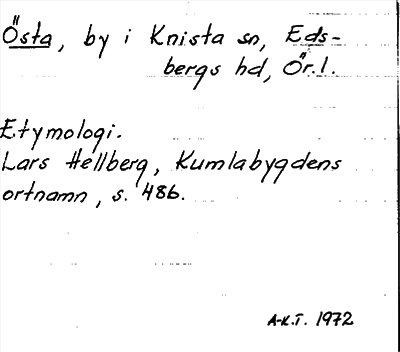 Östa, by i Knista sn, Eds-
bergs hd, Ör.l.
Etymologi.
Lars Hellberg, Kumlabygdens
ortnamn, s. 486.
A-K.T. 1972